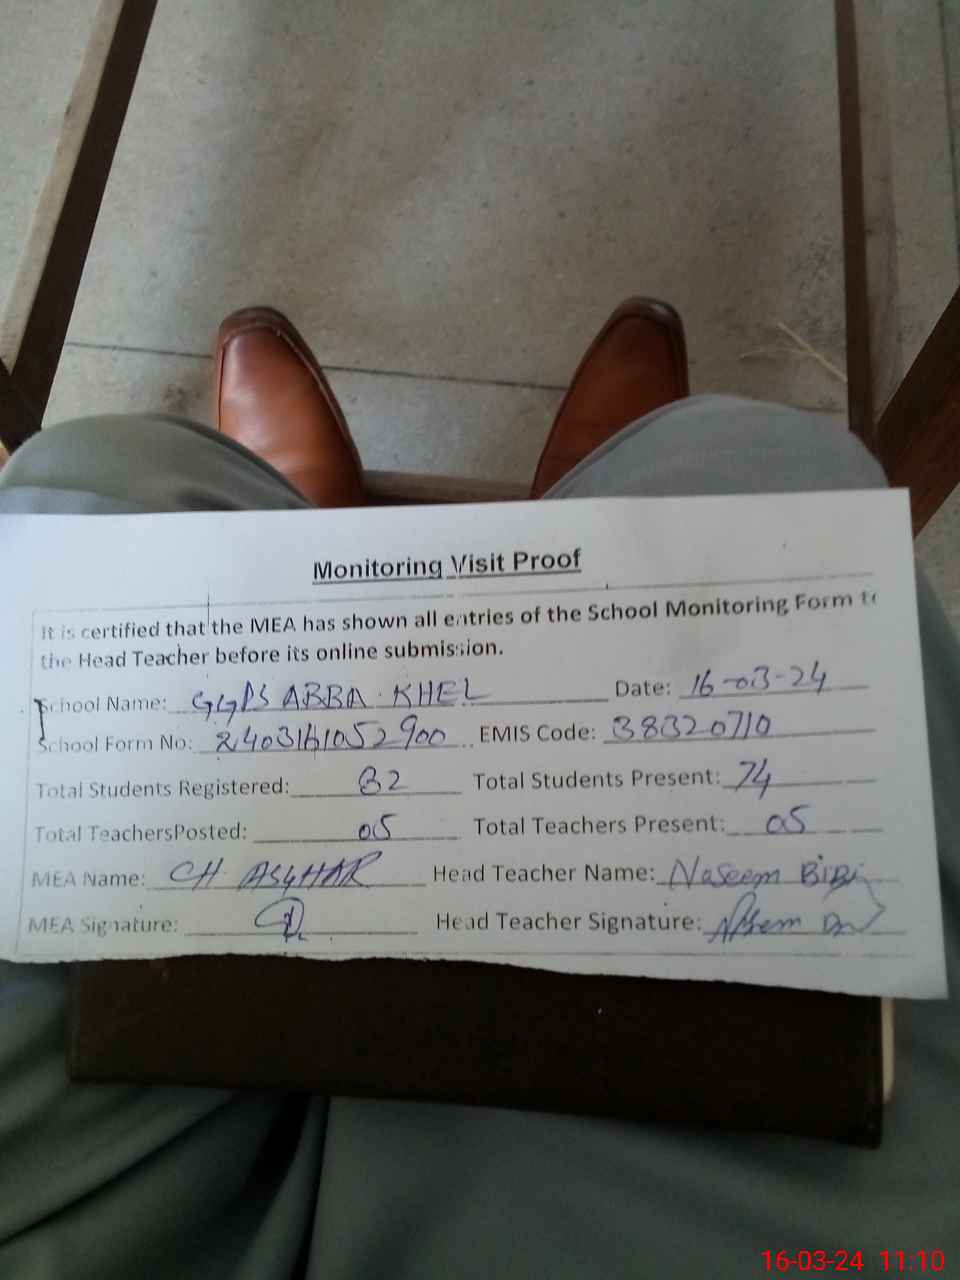 Monitoring Visit Proof
It is certified that the MEA has shown all entries of the School Monitoring Form to
the Head Teacher before its online submission.
School Name: GGPS ABBA KHEL Date: 16-03-24
School Form No: 2403161052900 EMIS Code: 38320710
Total Students Registered: 82 Total Students Present: 74
Total TeachersPosted: 05 Total Teachers Present: 05
MEA Name: CH ASGHAR Head Teacher Name: Naseem BiBi
MEA Signature: Head Teacher Signature:
16-03-24 11:10